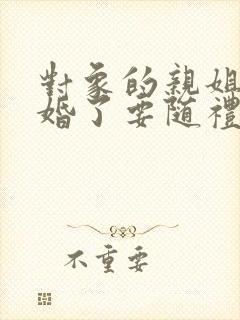 對象的親姐
婚了要随禮
不重要